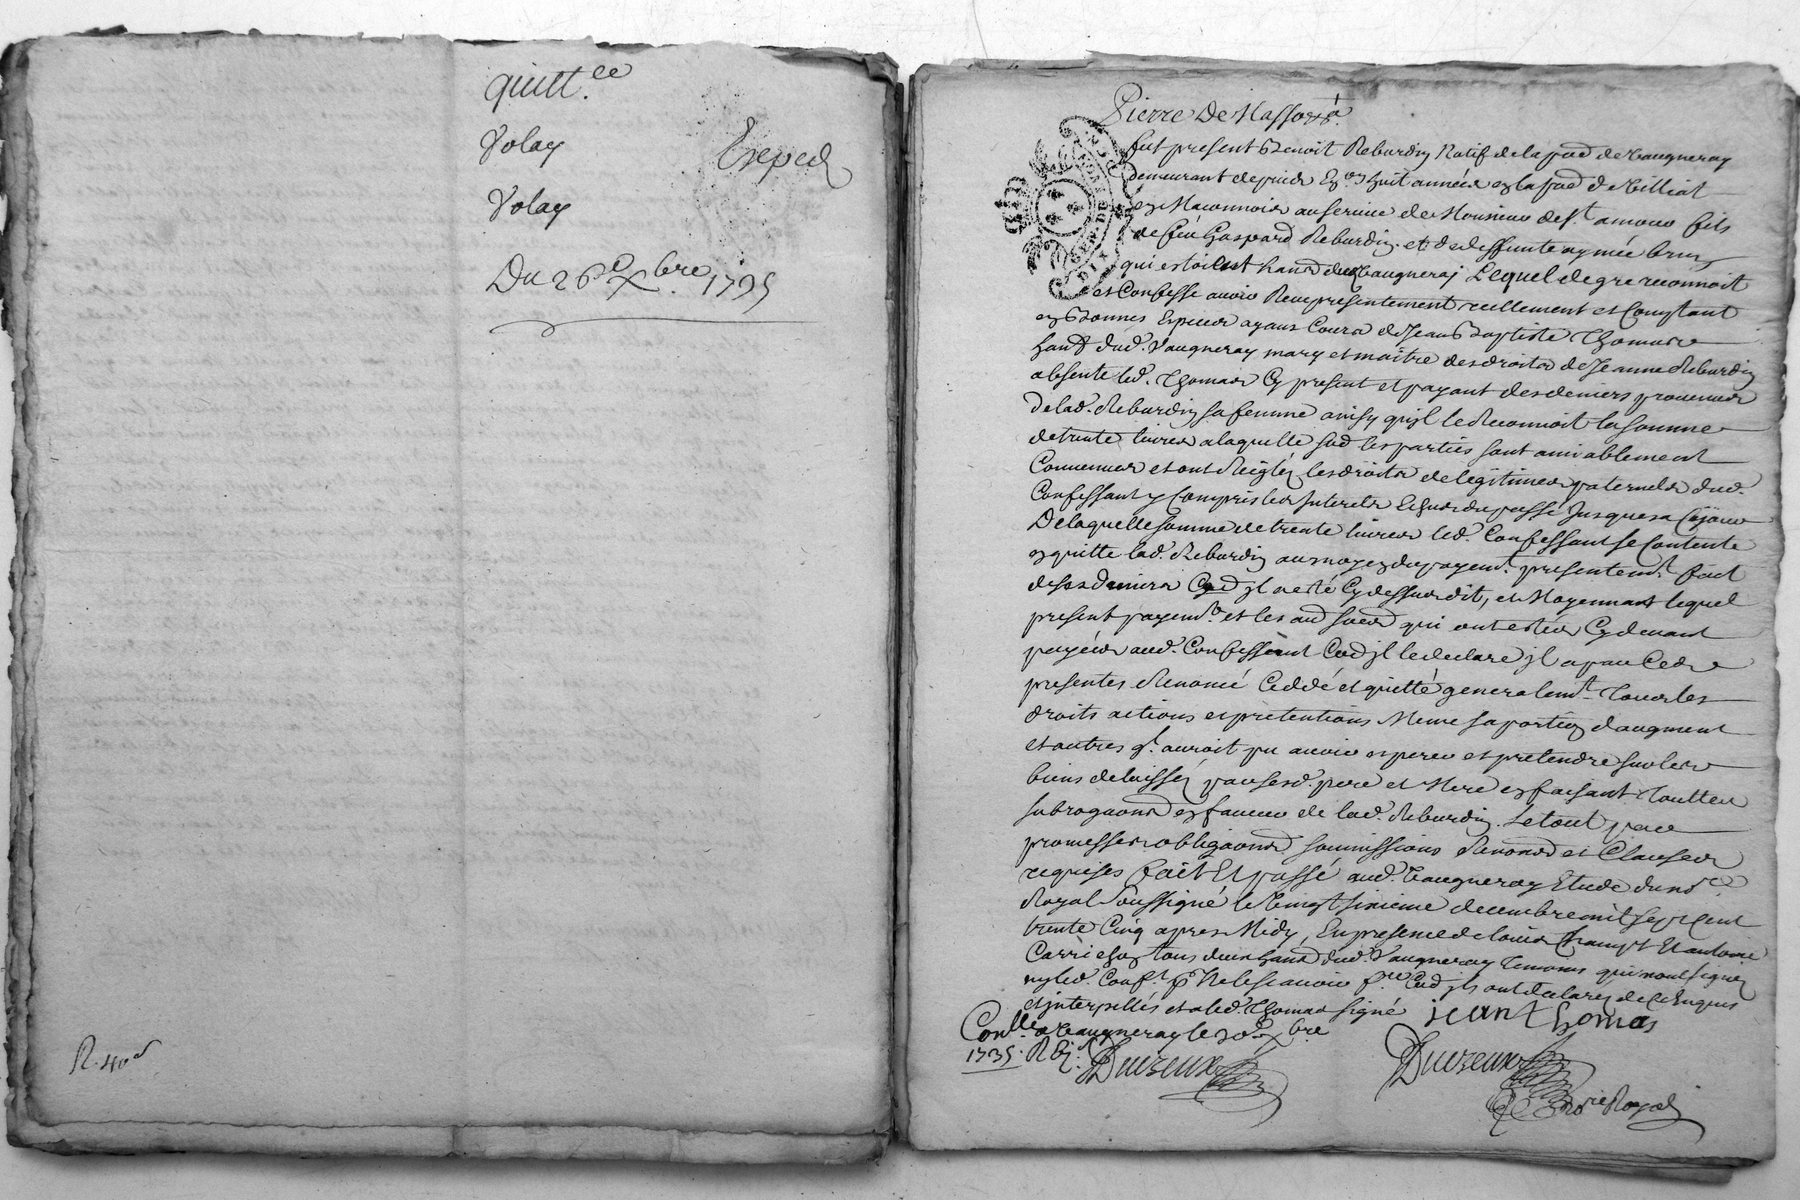 quitt.ce
Volay
Exped
Volay
Du 26e Xbre 1735
R. 40s
Pierre De Masso
fut present Benoit Reburdin Natif de la pad de Vaugneray
demeurant depuis huit années en la pad de
en Maconnois au service de Monsieur de St. amour fils
de feu Gaspard Reburdin et de deffunte aymée brun
qui estoient hand dud Vaugneraj Lequel de gre reconnoit
et Confesse avoir Receu presentement reellement et Comptant
en Bonnes Especes ayans Cours de Jean Baptiste Thomas
hand dud. Vaugneray mary et maitre des droits de Jeanne Reburdin
absente led. Thomas Cy present et payant des deniers provenus
de lad. Reburdin sa femme ainsy qu'jl le Reconnoit la somme
de trente livres a laquelle sud les parties sont amiablement
Convenues et ont Reiglé les droits de legitimes paternels dud.
Confessant y Compris les Interets Echus du passé Jusques a Cejour
De laquelle somme de trente livres led. Confessant se Contente
en quitte lad. Reburdin au moyen du payemt. presentemt. fait
de ses deniers C̃ jl a esté Cy dessus dit, et Moyennant lequel
present payemt. et les qui ont estées Cy devant
payées aud. Confessant Cõ jl le declare jl a par Ces
presentes Renoncé Ceddé et quitté generalemt. Tous les
droits actions et pretentions Meme sa portion d'augment
et autres ql. auroit pu avoir esperer et pretendre sur les
biens delaissés par sesd. pere et Mere en faisant Toutes
subrogaons en faveur de lad. Reburdin. Le tout par
promesses obligaons soumissions Renons et Clauses
requises fait Et passé aud. Vaugneray Etude du nore
Royal Soussigné le Vingt sixieme decembre mil sept Cent
trente Cinq apres Midy, En presence de louis et antoine
Carrie tous deux hand dud. Vaugneray Temoins qui n'ont signé
ny led. Conft. p ne le scavoir fre Cõ jls ont declaré de ce Enquis
et interpellés et a led. Thomas signé jean thomas
Conllé a Vaugneray le 30e Xbre
1735. R
Duvreux
Duvreux
nore Royal